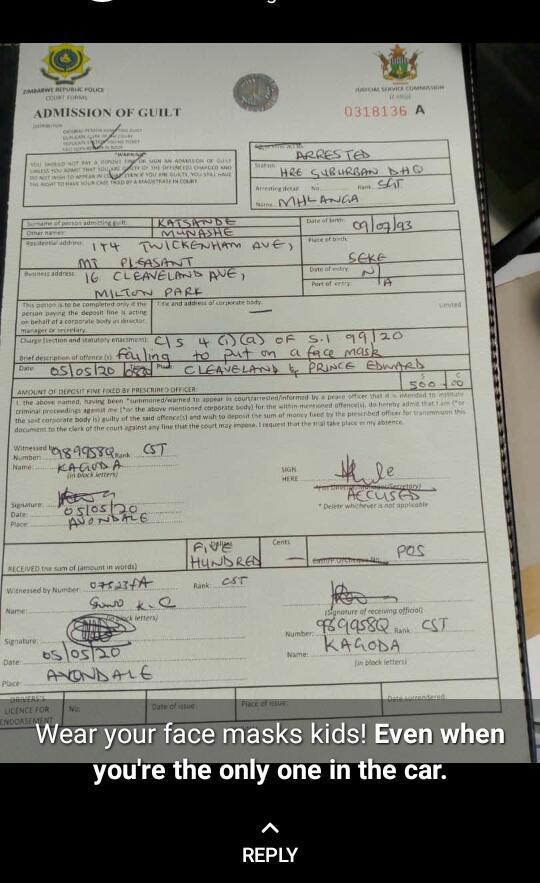 ZIMBABWE REPUBLIC POLICE
COURT FORMS
JUDICIAL SERVICE COMMISSION
ADMISSION OF GUILT
0318136 A
"WARNING"
YOU SHOULD NOT PAY A DEPOSIT FINE OR SIGN AN ADMISSION OF GUILT
UNLESS YOU ADMIT THAT YOU ARE GUILTY OF THE OFFENCE(S) CHARGED AND
DO NOT WISH TO APPEAR IN COURT. EVEN IF YOU ARE GUILTY, YOU STILL HAVE
THE RIGHT TO HAVE YOUR CASE TRIED BY A MAGISTRATE IN COURT.
ARRESTED
Station: HRE SUBURBAN DHQ
Arresting detail No. Rank. SGT
Name. MHLANGA
Surname of person admitting guilt: KATSANDE
Other names: MUNASHE
Date of birth: 09/07/93
Residential address: 174 TWICKENHAM AVE,
MT PLEASANT
Place of birth: SEKE
Business address: 16 CLEAVELAND AVE,
MILTON PARK
Date of entry N/A
Port of entry:
This portion is to be completed only if the
person paying the deposit fine is acting
on behalf of a corporate body as director,
manager or secretary.
Title and address of corporate body.
Limited
Charge (section and statutory enactment): C/S 4 (1)(a) OF S.I 99/20
Brief description of offence(s): failing to put on a face mask
Date: 05/05/20 Place CLEAVELAND & PRINCE EDWARD
AMOUNT OF DEPOSIT FINE FIXED BY PRESCRIBED OFFICER:
$ C
500 00
I, the above named, having been *summoned/warned to appear in court/arrested/informed by a peace officer that it is intended to institute
criminal proceedings against me (*or the above mentioned corporate body) for the within-mentioned offence(s), do hereby admit that I am (*or
the said corporate body is) guilty of the said offence(s) and wish to deposit the sum of money fixed by the prescribed officer for transmission this
document to the clerk of the court against any fine that the court may impose. I request that the trial take place in my absence.
Witnessed by
Number: 989958Q Rank CST
Name: KAGODA
(in block letters)
SIGN
HERE
ACCUSED
* Delete whichever is not applicable
Signature:
Date: 05/05/20
Place: AVONDALE
RECEIVED the sum of (amount in words)
FIVE
HUNDRED
Cents
POS
Witnessed by Number: Rank: CST
Name:
(in block letters)
(Signature of receiving official)
Number: 989958Q Rank CST
Name: KAGODA
(in block letters)
Signature:
Date: 05/05/20
Place: AVONDALE
DRIVERS'S
LICENCE FOR
ENDORSEMENT
No:
Date of issue:
Place of issue:
Date surrendered:
Wear your face masks kids! Even when
you're the only one in the car.
REPLY